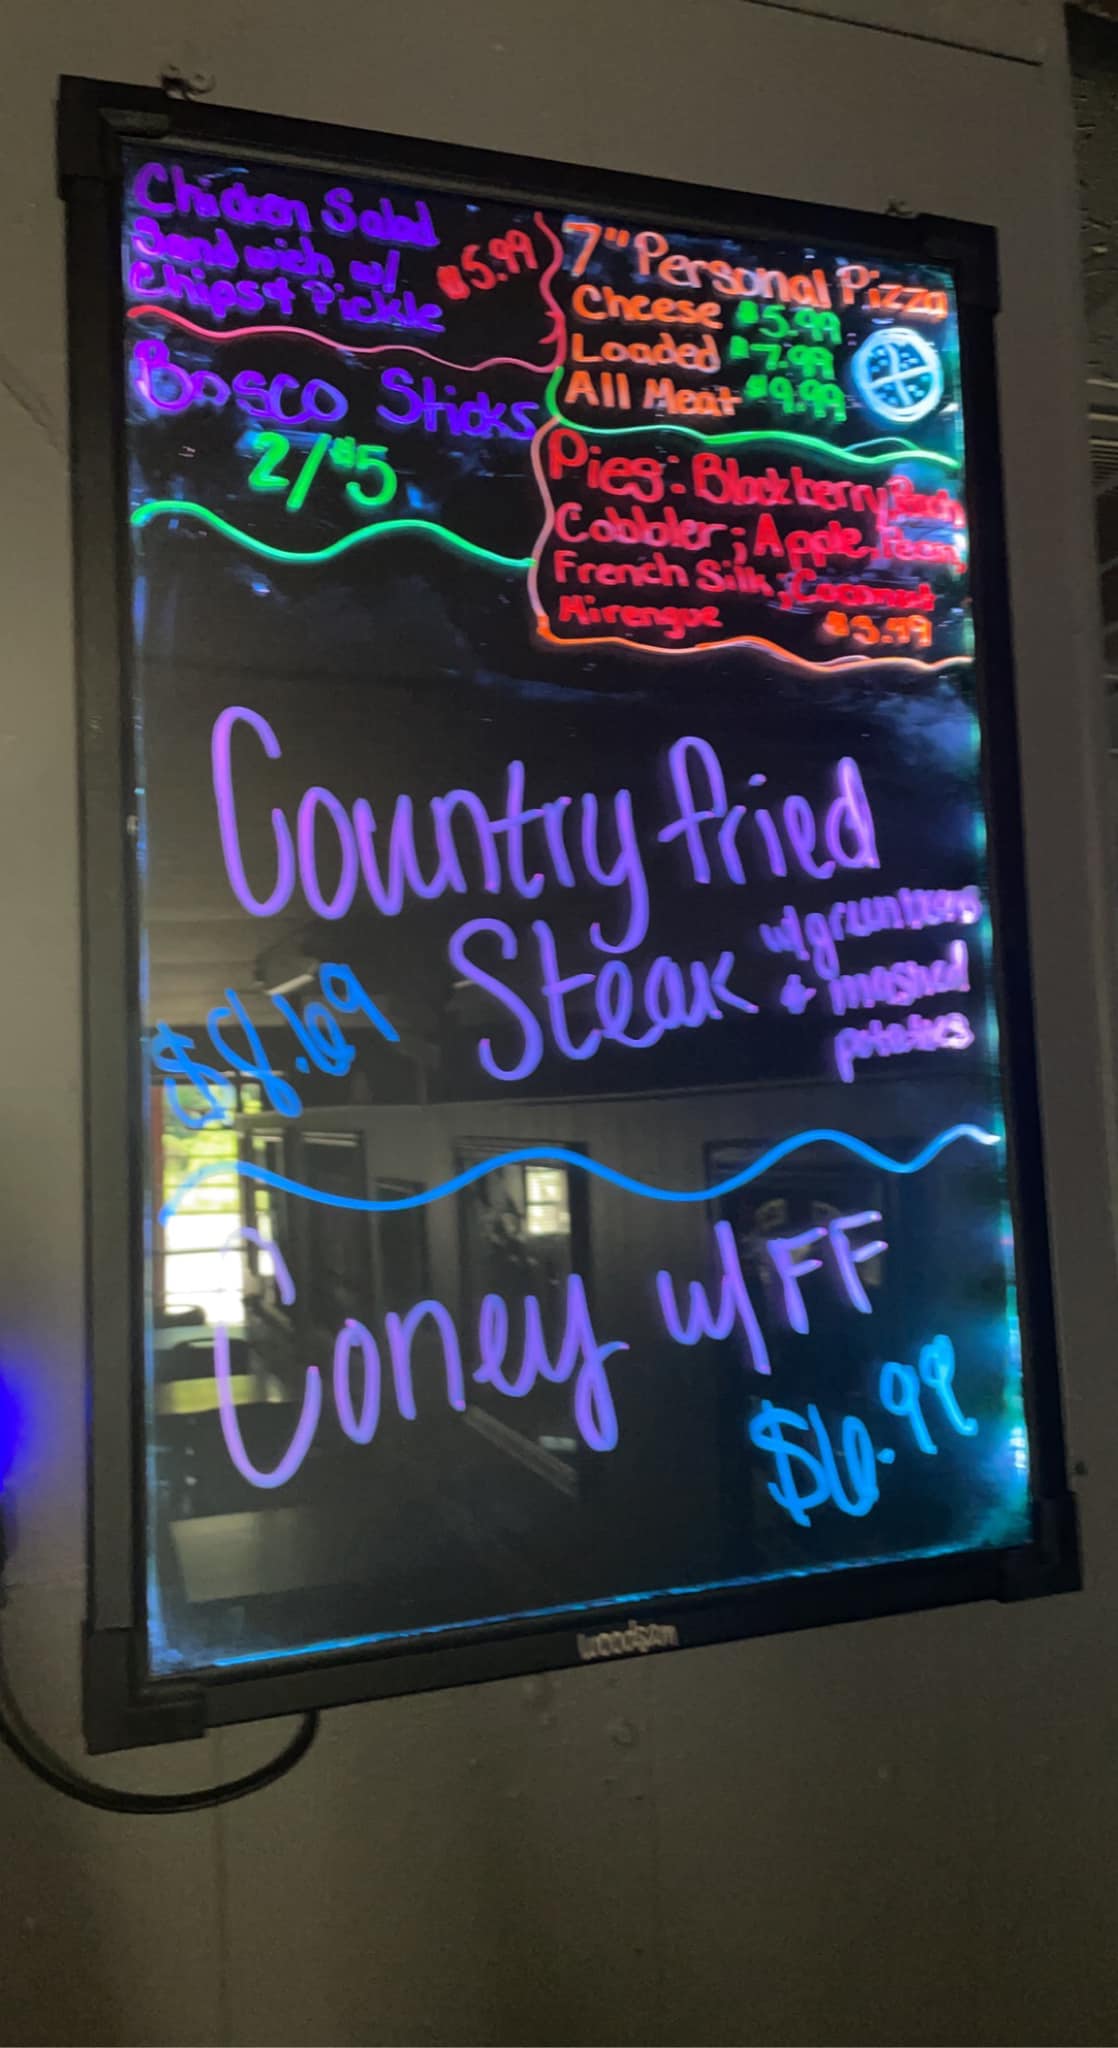 Chicken Salad
Sandwich w/
Chips & Pickle $5.99
Bosco Sticks
2/$5
7" Personal Pizza
Cheese $5.99
Loaded $7.99
All Meat $9.99
Pies: Blackberry, Peach
Cobbler; Apple, Pecan,
French Silk; Coconut
Mirengue $3.99
Country fried
Steak w/grunbeans
& mashed
potatoes
$8.69
Coney w/FF
$6.99
woodsam